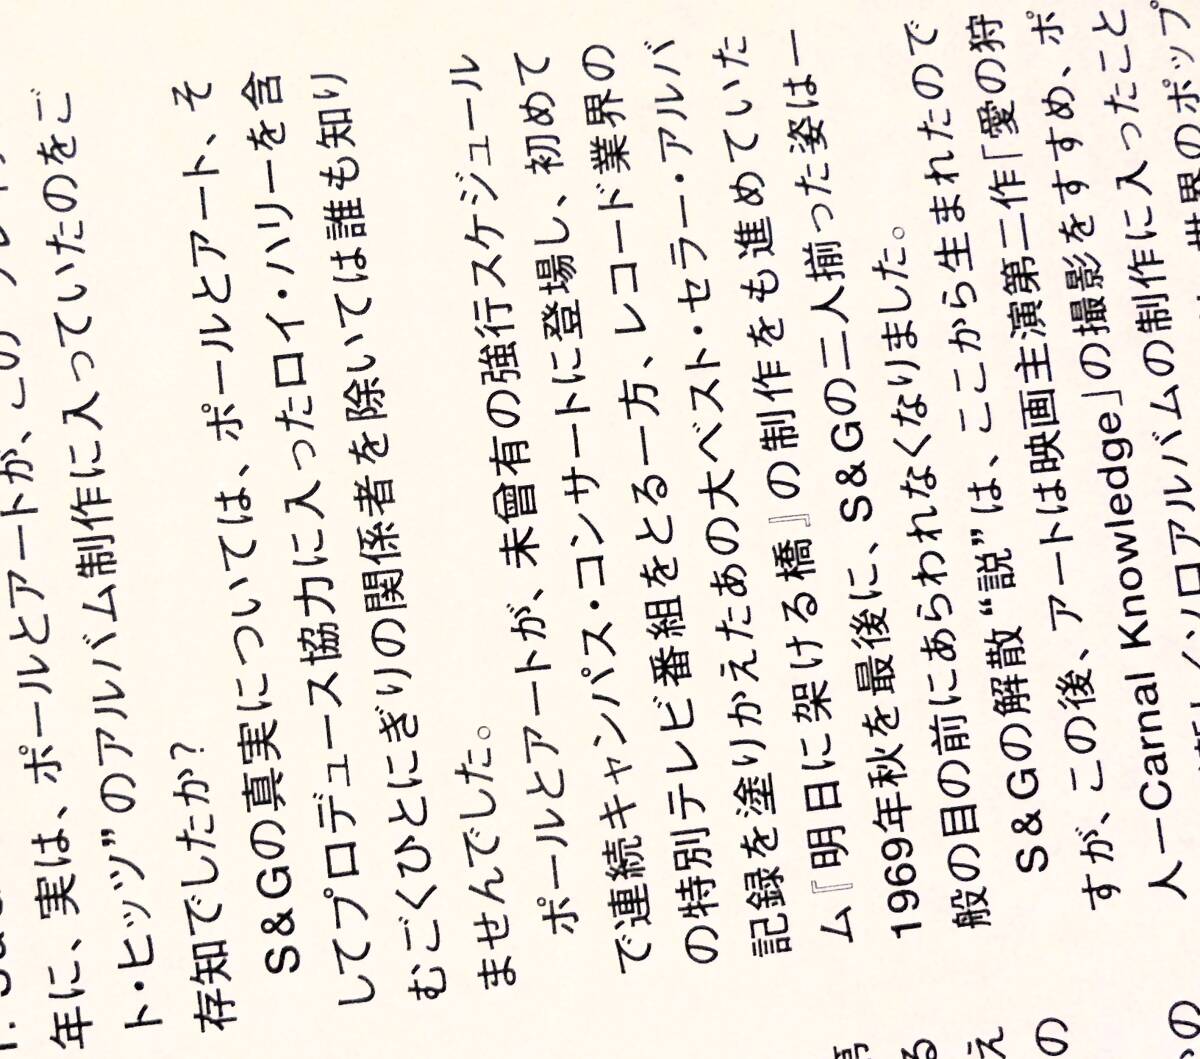 年に、実は、ポールとアートが、この
ト・ヒッツ”のアルバム制作に入っていたのをご
存知でしたか?
S&Gの真実については、ポールとアート、そ
してプロデュース協力に入ったロイ・ハリーを含
むごくひとにぎりの関係者を除いては誰も知り
ませんでした。
ポールとアートが、未曾有の強行スケジュール
で連続キャンパス・コンサートに登場し、初めて
の特別テレビ番組をとる一方、レコード業界の
記録を塗りかえたあの大ベスト・セラー・アルバ
ム『明日に架ける橋』の制作をも進めていた
1969年秋を最後に、S&Gの二人揃った姿は一
般の目の前にあらわれなくなりました。
S&Gの解散“説”は、ここから生まれたので
すが、この後、アートは映画主演第二作「愛の狩
人―Carnal Knowledge」の撮影をすすめ、ポ
ソロアルバムの制作に入ったこと
世界のポップ
る
え
の
の